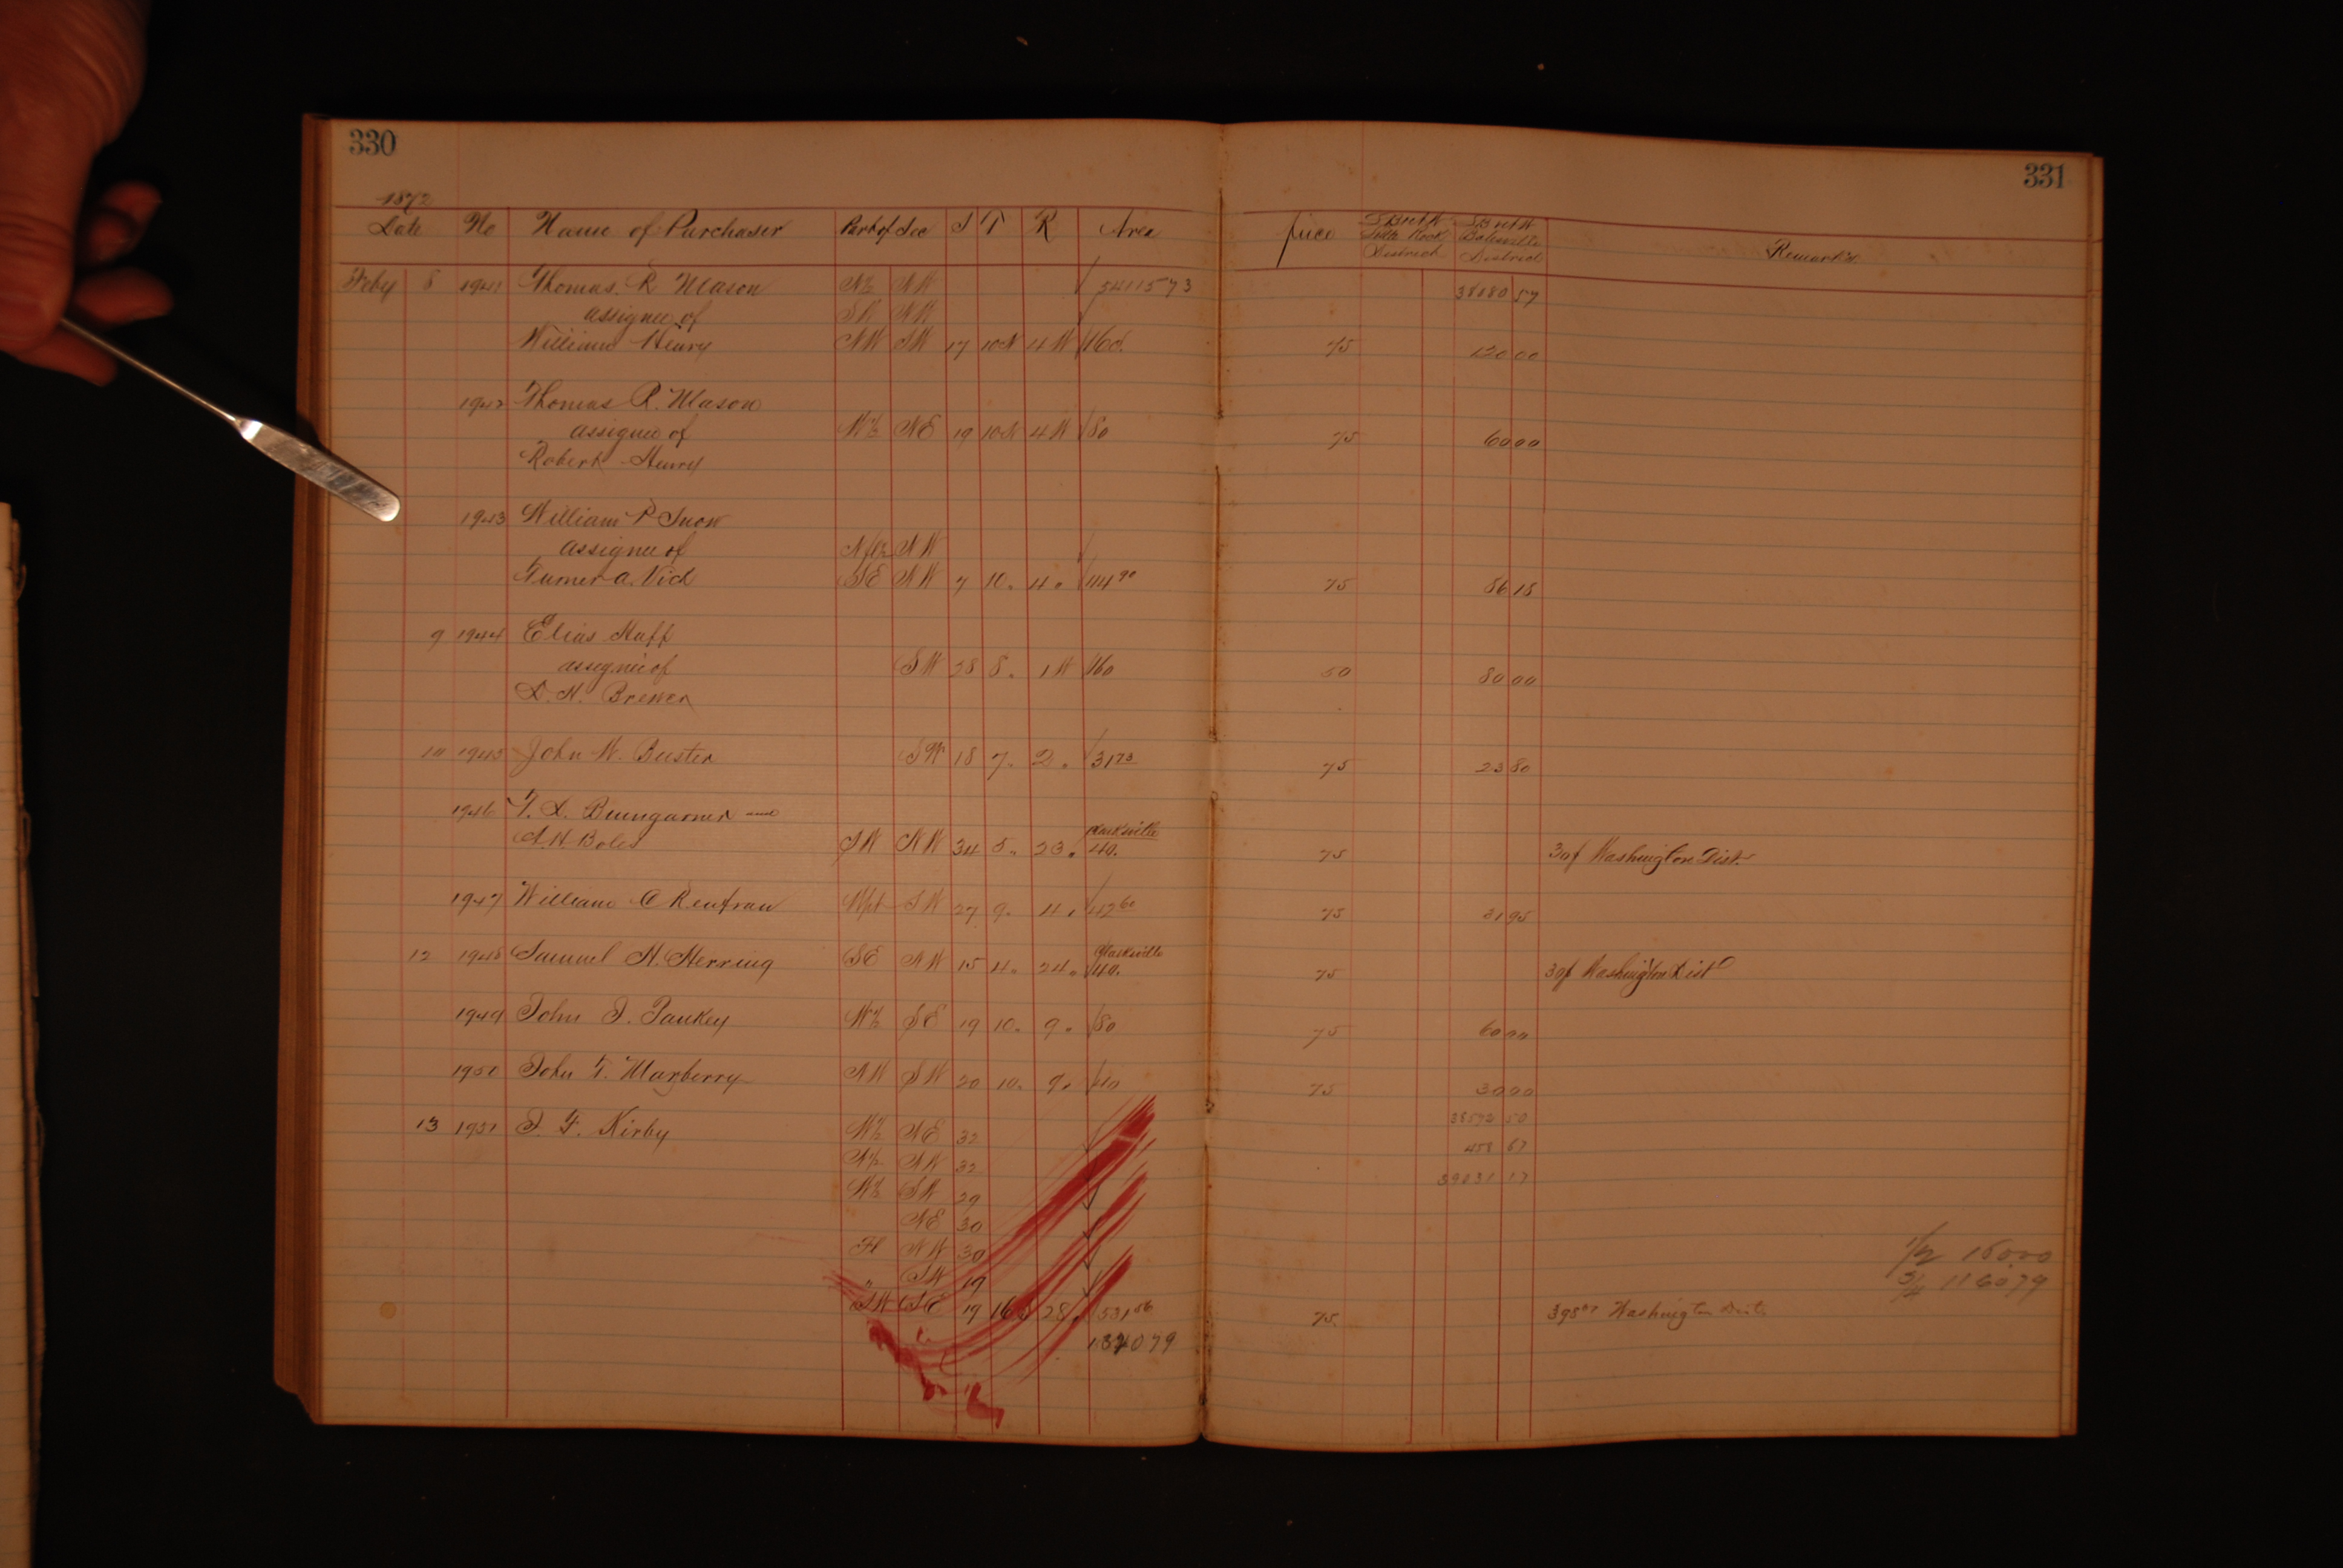 330
331
1872
Date No Name of Purchaser Part of Sec S T R Area Price Little Rock District Batesville District Remarks
Feby 8 1941 Thomas R Mason N½ NW 5411573 38180 57
assignee of SW NW
William Henry NW SW 17 10N 4W 160. 75 120 00
1942 Thomas R. Mason
assignee of W½ NE 19 10N 4W 80 75 60 00
Robert Henry
1943 William P Snow
assignee of NW
Turner A. Vick SE NW 7 10 " 4 " 114 90 75 86 18
9 1944 Elias Huff
assignee of SW 28 8 " 1W 160 50 80 00
D. H. Brewer
10 1945 John W. Buster SW 18 7 " 2 " 31 73 75 23 80
1946 T. D. Bumgarner and Clarksville
A. H. Boles SW NW 34 5 " 23 " 40. 75 30 of Washington Dist.
1947 William C Renfraw Npt SW 27 9 " 4 " 42 60 75 31 95
12 1948 Samuel H. Herring SE NW 15 4 " 24 " Clarksville 40. 75 30 of Washington Dist
1949 John S. Pankey W½ SE 19 10 " 9 " 80 75 60 00
1950 John T. Marberry NW SW 20 10 " 9 " 40 75 30 00
38572 50
13 1951 J. F. Kirby W½ NE 32 458 67
N½ NW 32
W½ SW 29 39031 17
NE 30
Fl NW 30 1/2 16000
" SW 19 3/4 116079
SW SE 19 16 28 " 531 56 75. 398 67 Washington Dist.